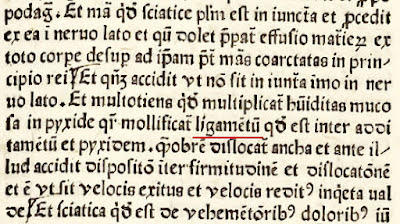 podag᷑. Et mã qđ sciatice plm̃ est in iuncta et ꝓcedit
ex ea ĩ neruo lato et qñ dolet ꝑpat effusio matiez ex
toto corpe desup ad ip̃am pt̃ mãs coarctatas in prin-
cipio rei Et qñqꝫ accidit vt nõ sit in iunta imo in ner
uo lato. Et multotiens qñ multiplicat᷑ hũiditas muco
sa in pyxide qm̃ mollificat᷑ ligamẽtũ qđ est inter addi
tamẽtũ et pyxidem. qꝓbrẽ dislocat᷑ ancha et ante il-
lud accidit dispositõ ĩter firmitudinẽ et dislocatõnẽ
et ẽ vt sit velocis exitus et velocis redit⁹ inq̃eta val
de Et sciatica qđ est de vehemẽtõrib⁹ dolorib⁹ iũ